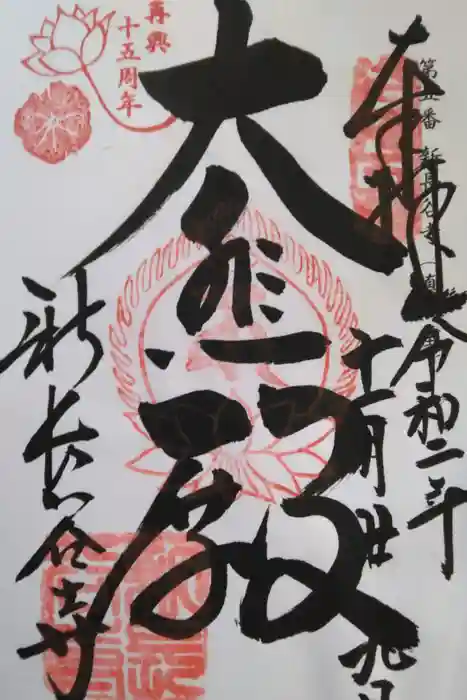 第五番 新長谷寺
奉拝
令和二年
十一月廿九日
再興
十五周年
大悲殿
新長谷寺